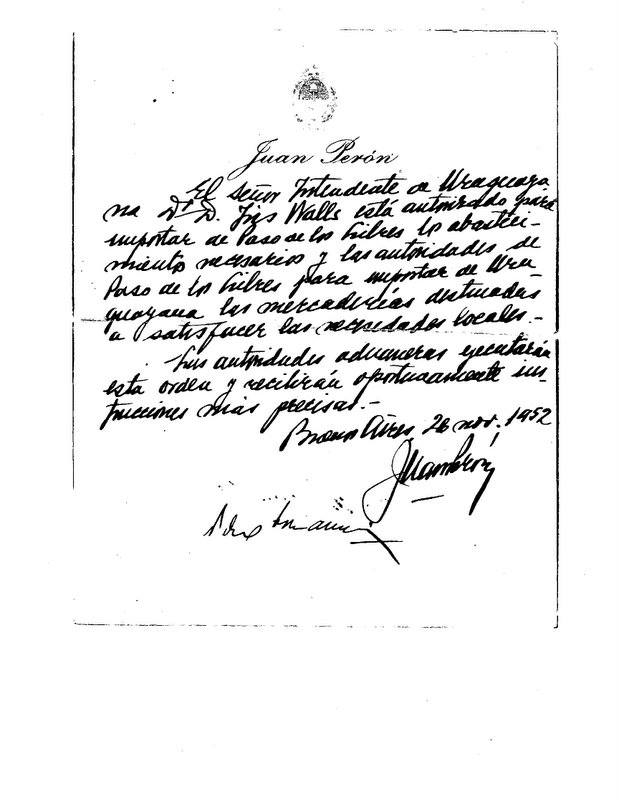 Juan Perón
El Señor Intendente de Uruguaya
na Dr. D. Iris Walls está autorizado para
importar de Paso de los Libres lo abasteci-
miento necesarios y las autoridades de
Paso de los Libres para importar de Uru-
guayana las mercaderías destinadas
a satisfacer las necesidades locales.-
Las autoridades aduaneras ejecutarán
esta orden y recibirán oportunamente ins-
trucciones más precisas.-
Buenos Aires, 26 nov. 1952
Juan Perón